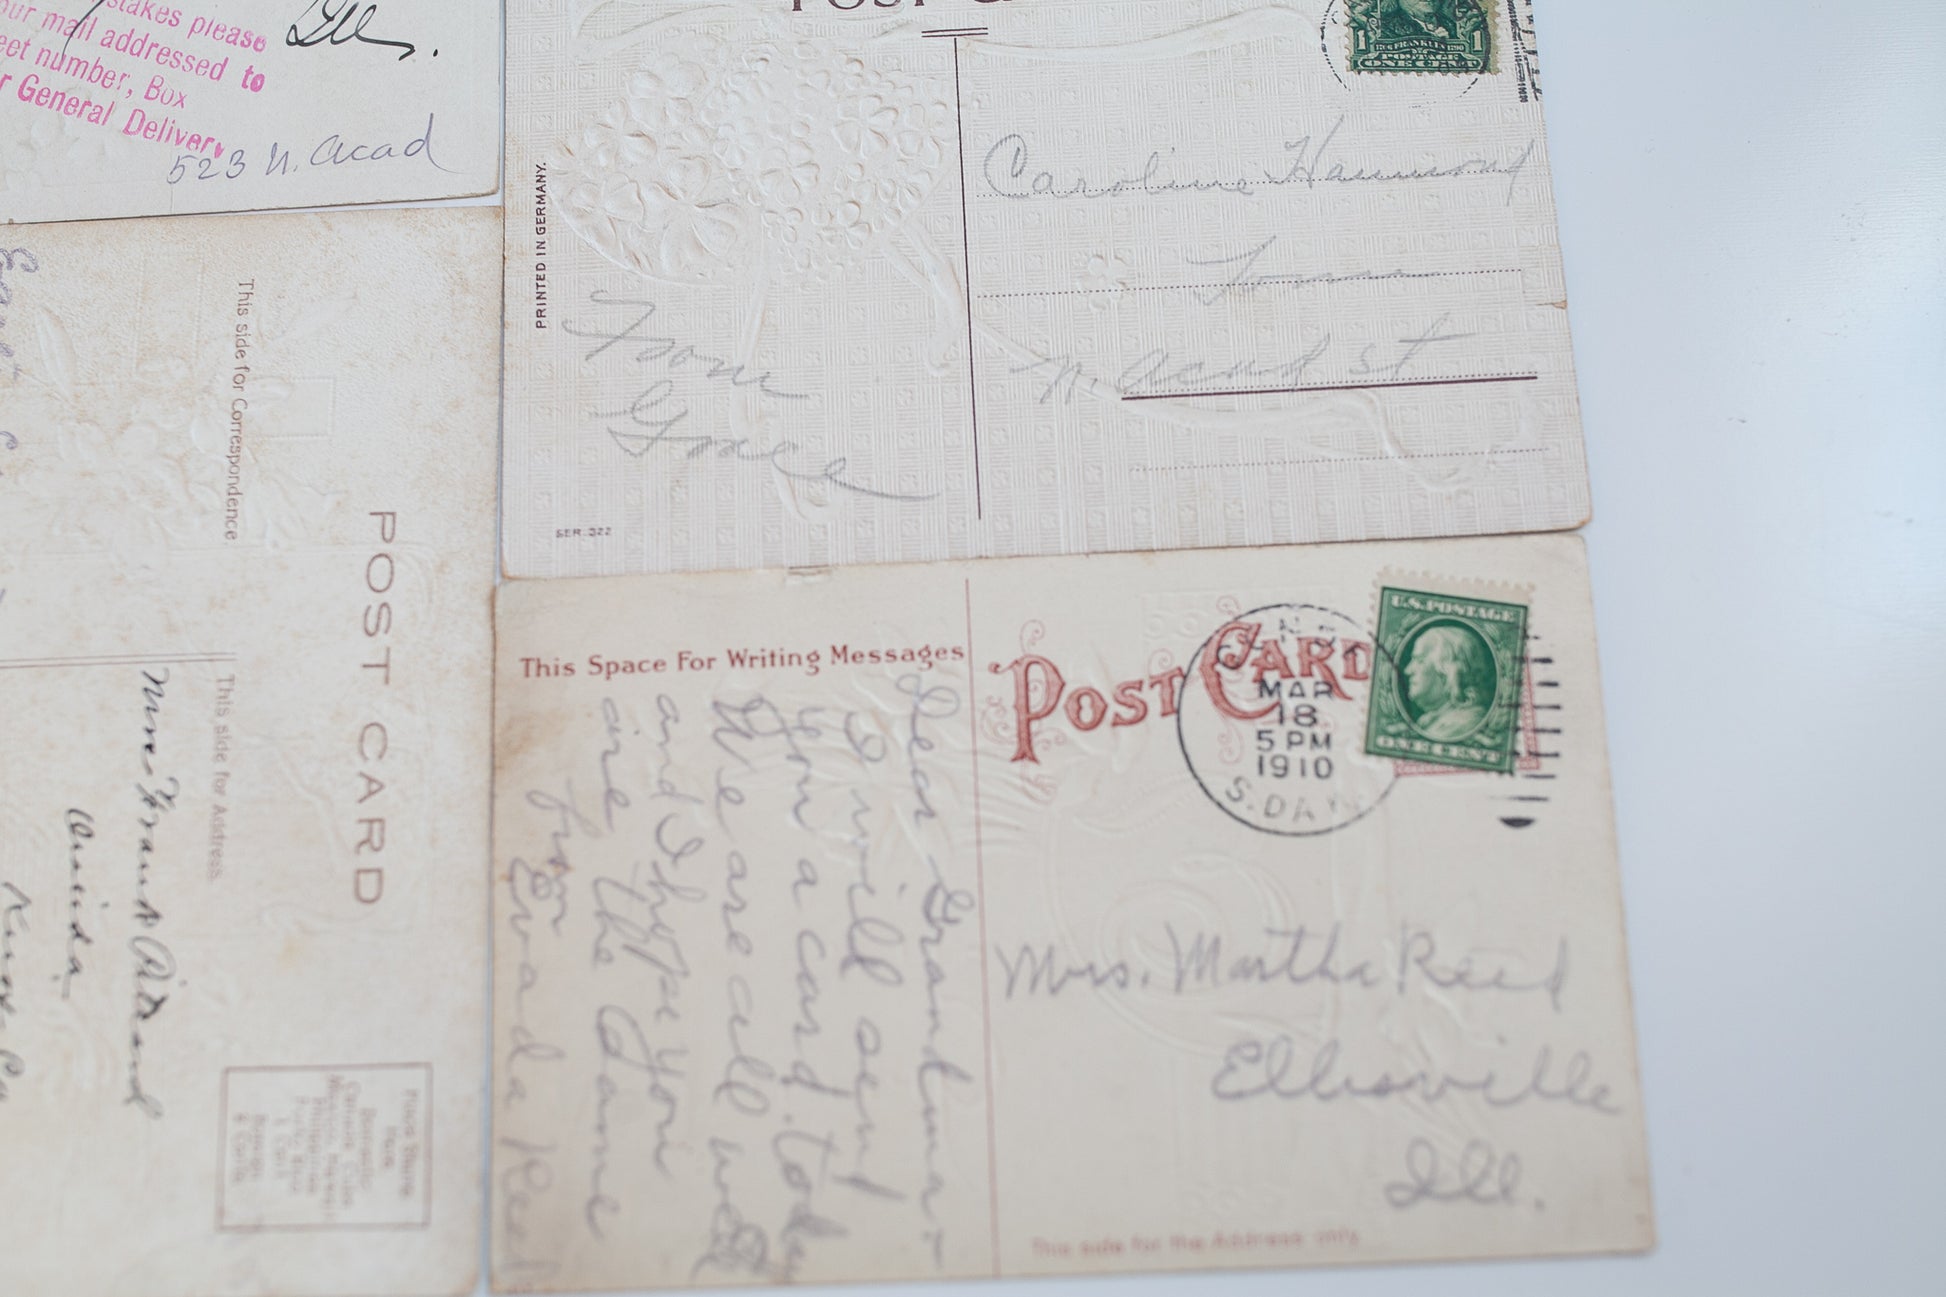 stakes please
our mail addressed to
eet number, Box
r General Delivery
Ill.
523 N. Acad
POST C
1 1
ONE CENT
PRINTED IN GERMANY.
Caroline Hammond
Town
N. Acad st
From
Grace
SER. 322
This side for Correspondence
POST CARD
This side for Address.
Mrs Frank
Place Stamp
Here
Domestic
This Space For Writing Messages
Dear Grandma-
I will send
you a card today
We are all well
and I hope you
are the same
from
Evada Reed
POST CARD
MAR
18
5 PM
1910
S. DAK
U.S. POSTAGE
ONE CENT
Mrs. Martha Reed
Ellisville
Ill.
This side for the Address only.